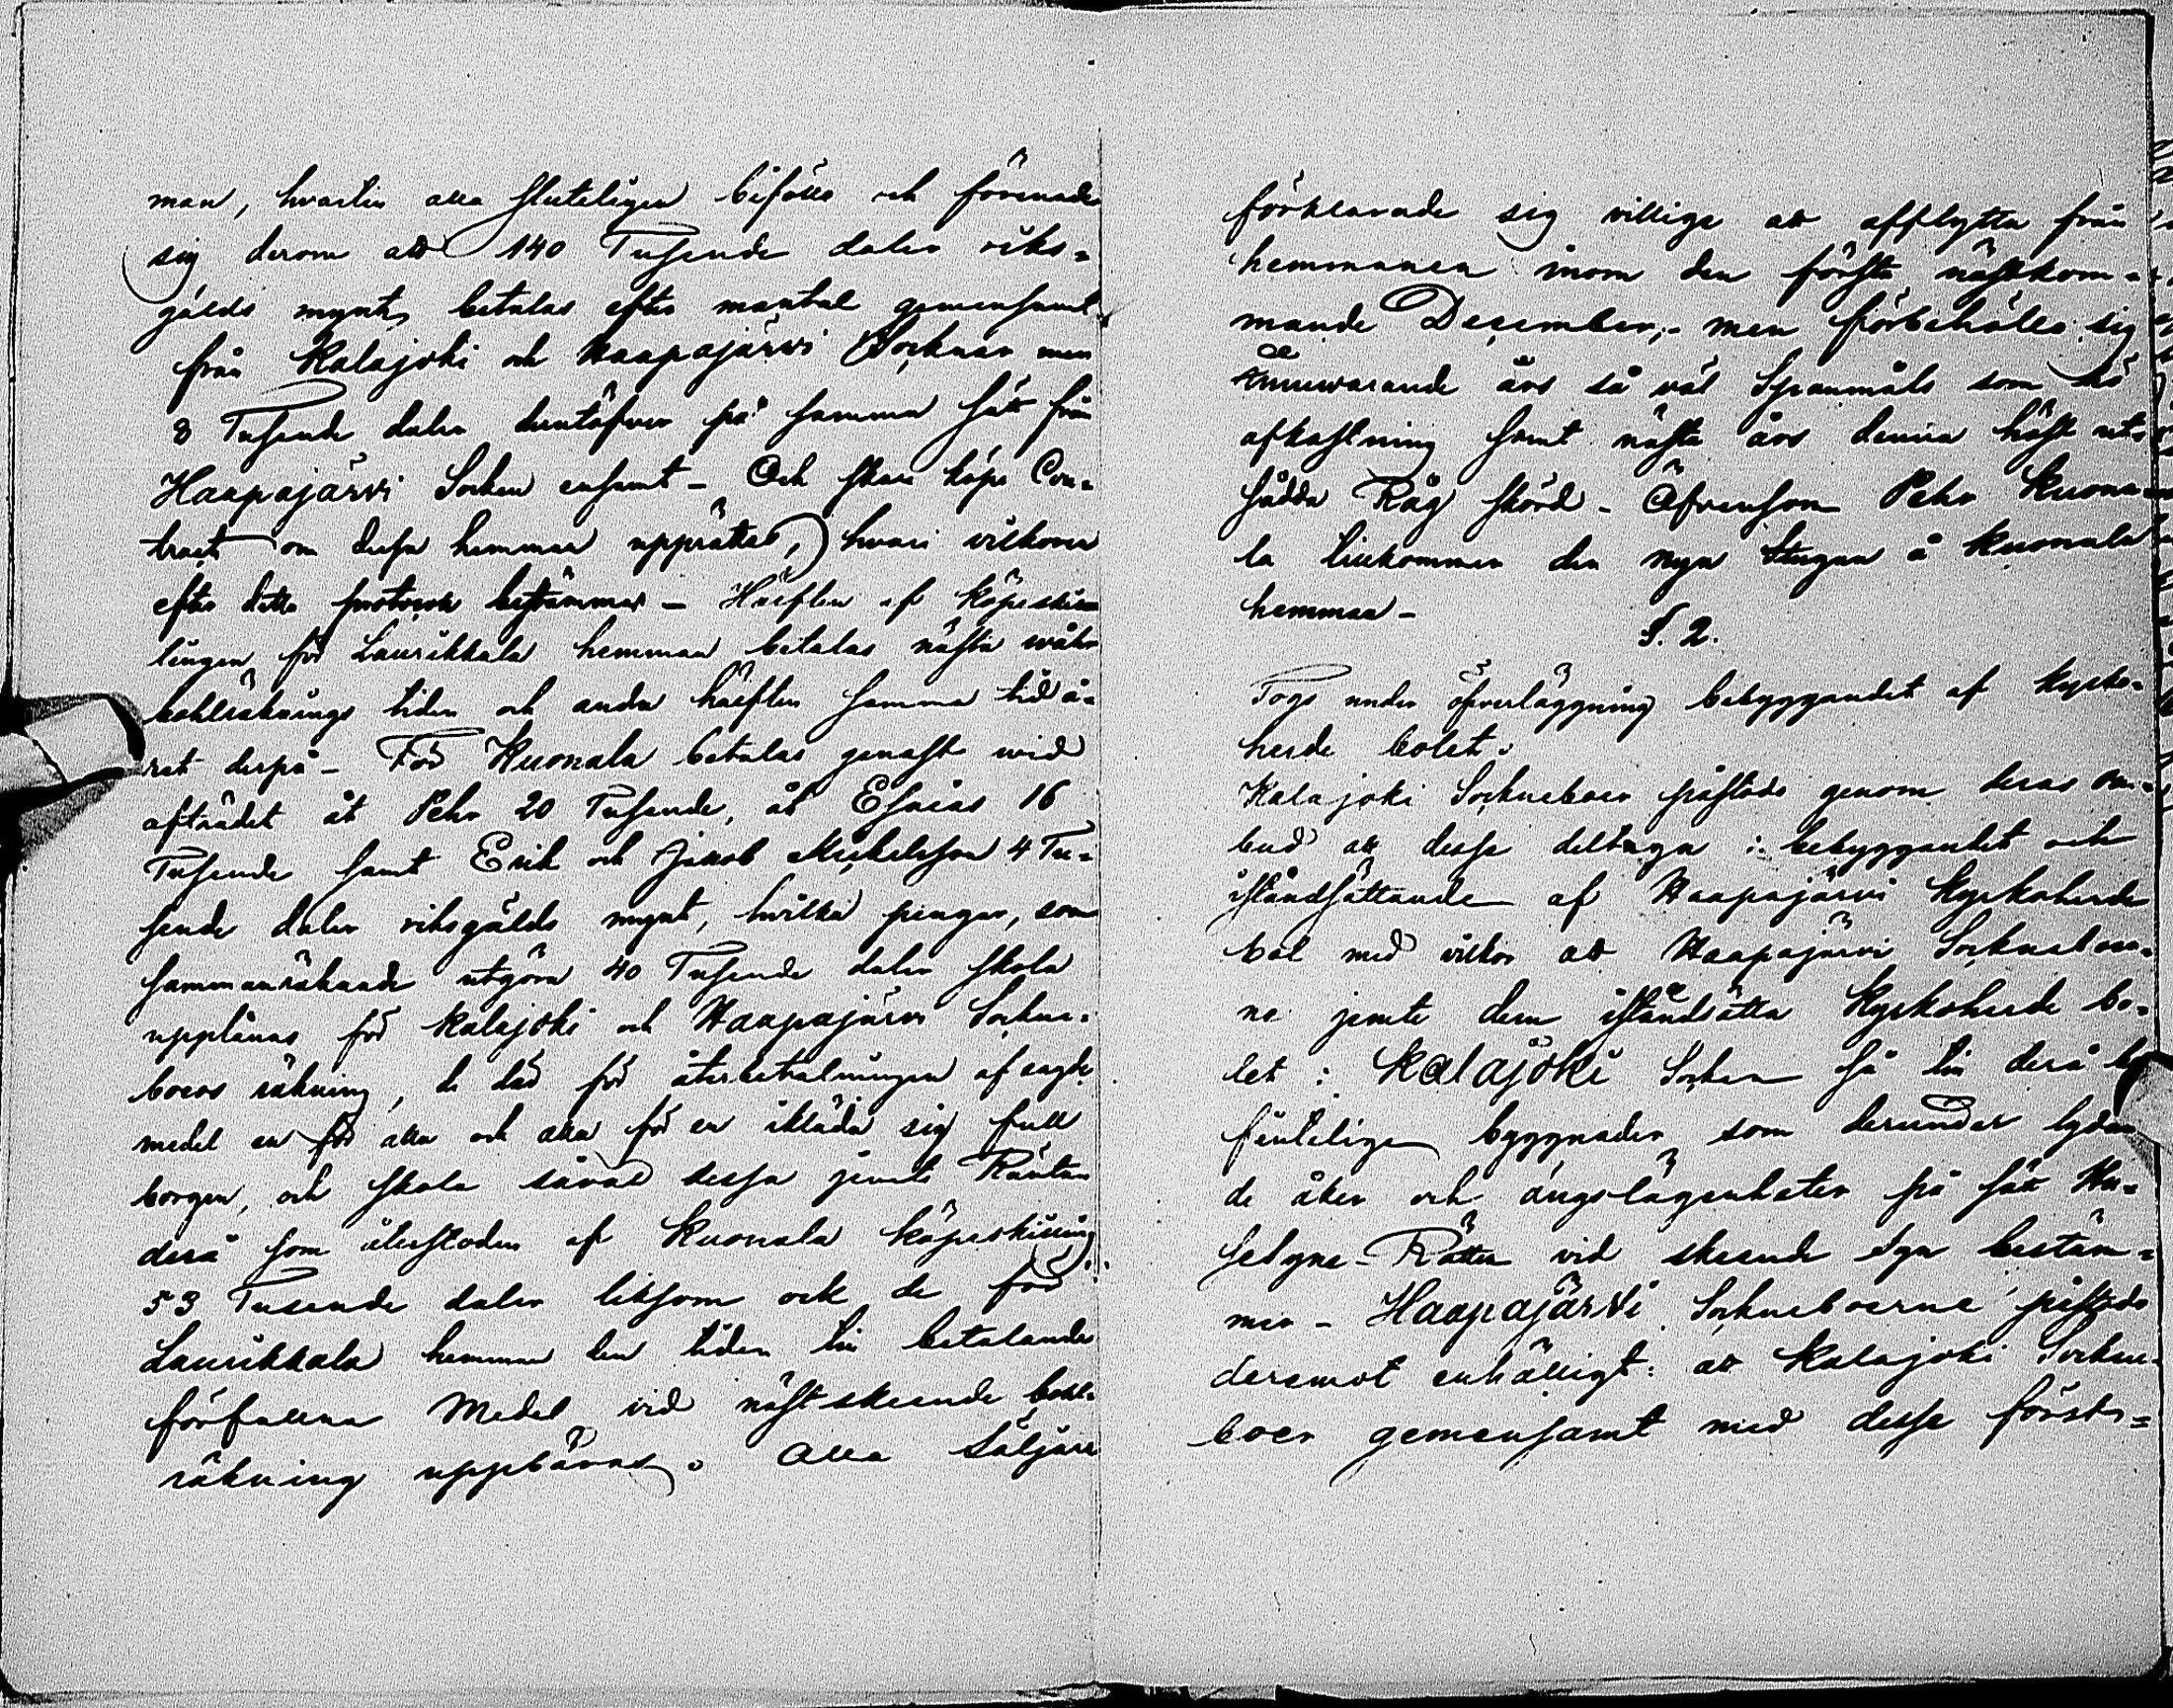 man, hvartill alla sluteligen biföllo och förenade
sig derom att 140 Tusende daler riks-
gälds mynt, betalas efter mantal gemensamt
från Kalajoki och Haapajärvi Socknar men
8 Tusende daler derutöfver på samma sätt från
Haapajärvi Socken ensamt - Och skall köpe Con-
tract om dessa hemman upprättas, hvari vilkoren
efter detta protocoll bestämmes - Hälften af köpeskil-
lingen för Laurikkala hemman betalas nästa wår
bohlräknings tiden och andra hälften samma tid å-
ret derpå - För Kuonala betalas genast wid
afträdet åt Pehr 20 Tusende, åt Esaias 16
Tusende samt Erik och Jakob Michelsson 4 Tu-
sende daler riksgälds mynt, hvilka pengar, som
sammanräknade utgöra 40 Tusende daler skola
upplånas för Kalajoki och Haapajärvi Sockne-
boers räkning, de där för återbetalningen af sagde
medel en för alla och alla för en ikläda sig full
borgen, och skola såväl dessa jemte Räntan
derå som återstoden af Kuonala köpeskilling
53 Tusende daler liksom ock de för
Laurikkala hemman den tiden till betalande
förfallna Medel vid nästskeende bohl-
räkning uppbäras. Alla Säljare
förklarade sig villige att afflytta från
hemmanen inom den förste nästkom-
mande December, - men förbehöllo sig
innewarande års så väl Spanmåls som hö
afkastning samt nästa års denna höst ut-
sådda Råg skörd - Äfvensom Pehr Kuona-
la tillkommer den nya stugan å Kuonala
hemman -
§. 2.
Togs under öfverläggning bebyggandet af kyrko-
herde bolet.
Kalajoki Sockneboer påstodo genom deras om-
bud att desse deltaga i bebyggandet och
iståndsättande af Haapajärvi Kyrkoherde
bol med vilkor att Haapajärvi Sockneboer-
ne jemte dem iståndsätta Kyrkoherde bo-
let i Kalajoki Socken så till derå be-
finteliga byggnader som derunder lydan-
de åker och ängslägenheter på sätt Hu-
sesyne-Rätten vid skeende syn bestäm-
mer - Haapajärvi Sockneboerne påstodo
deremot enhälligt: att Kalajoki Sockne-
boer gemensamt med desse först-